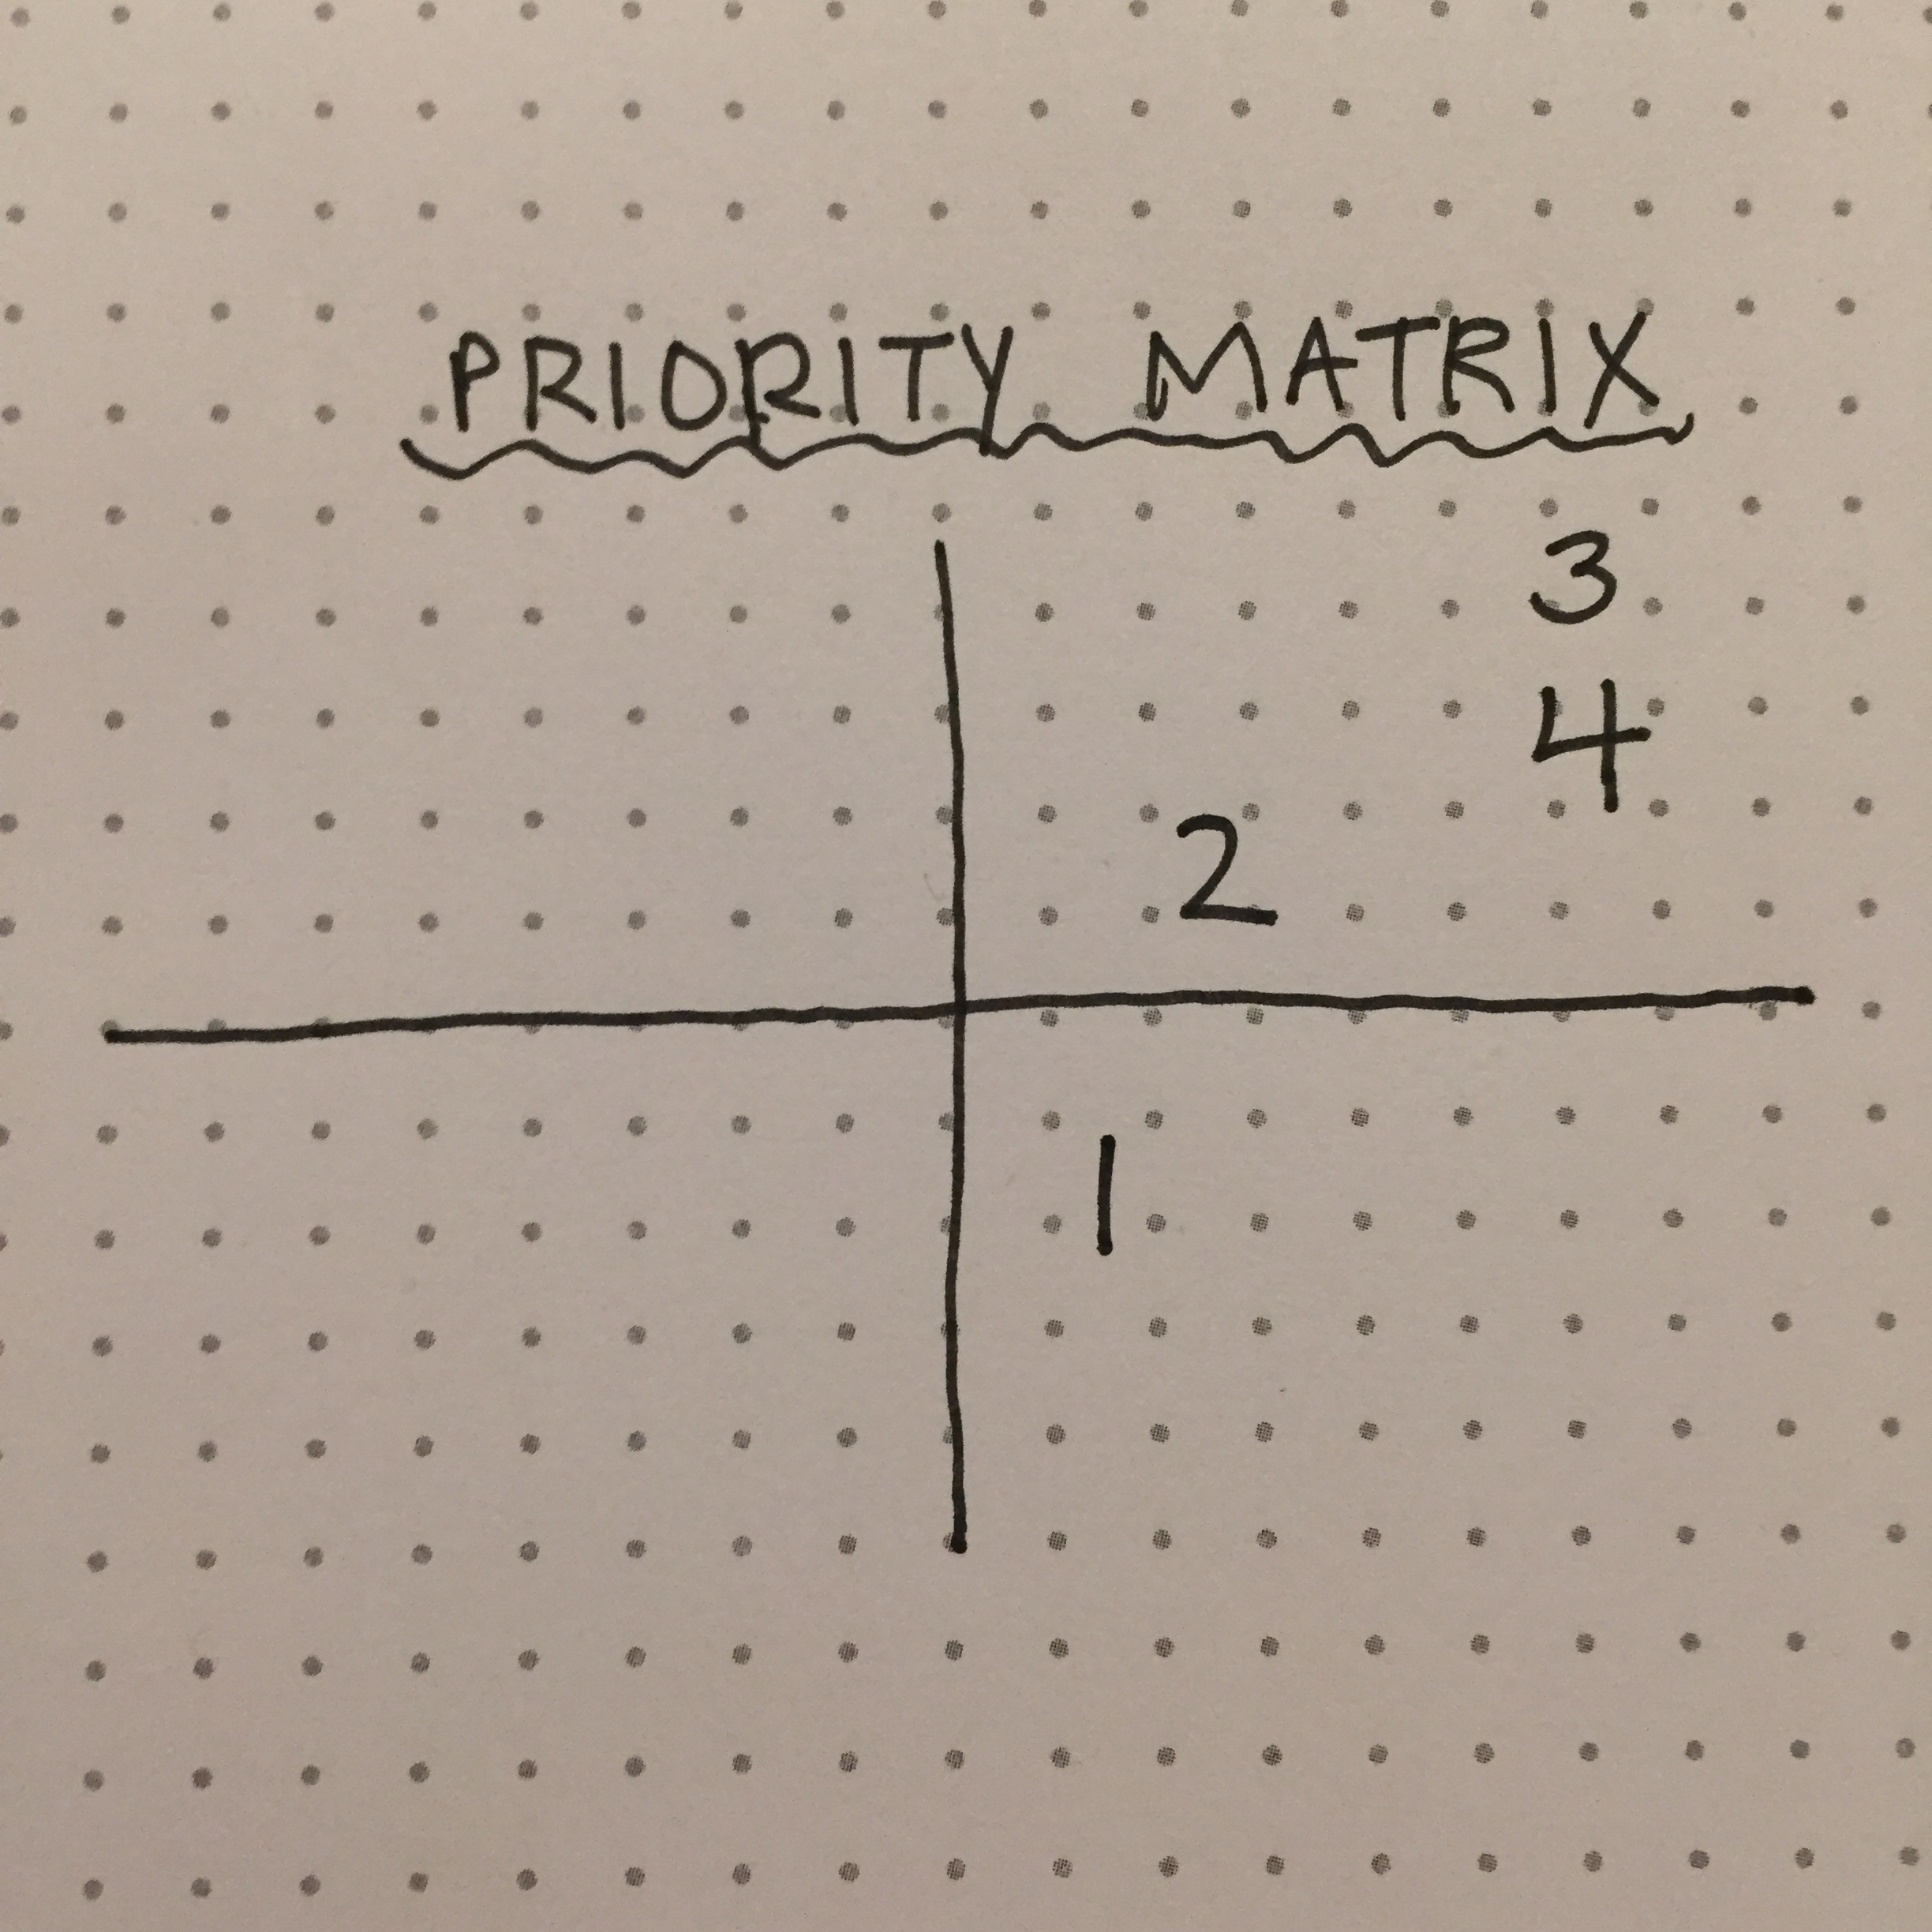 PRIORITY MATRIX
3
4
2
1